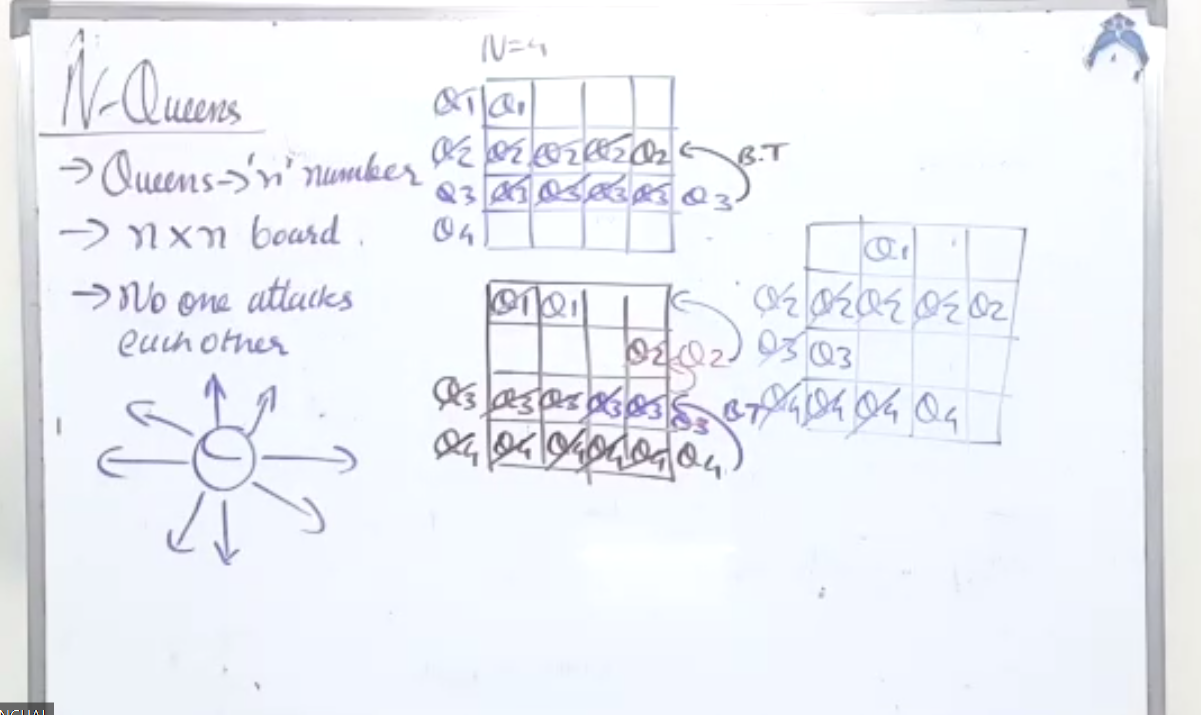 N-Queens
→ Queens→'n' number
→ n×n board.
→ No one attacks
each other
N=4
Q1 Q1
Q2 Q2 Q2 Q2 Q2 B.T
Q3 Q3 Q3 Q3 Q3 Q3
Q4
Q1 Q1
Q2 Q2
Q3 Q3 Q3 Q3 Q3 Q3 B.T
Q4 Q4 Q4 Q4 Q4 Q4
Q1
Q2 Q2 Q2 Q2 Q2
Q3 Q3
Q4 Q4 Q4 Q4